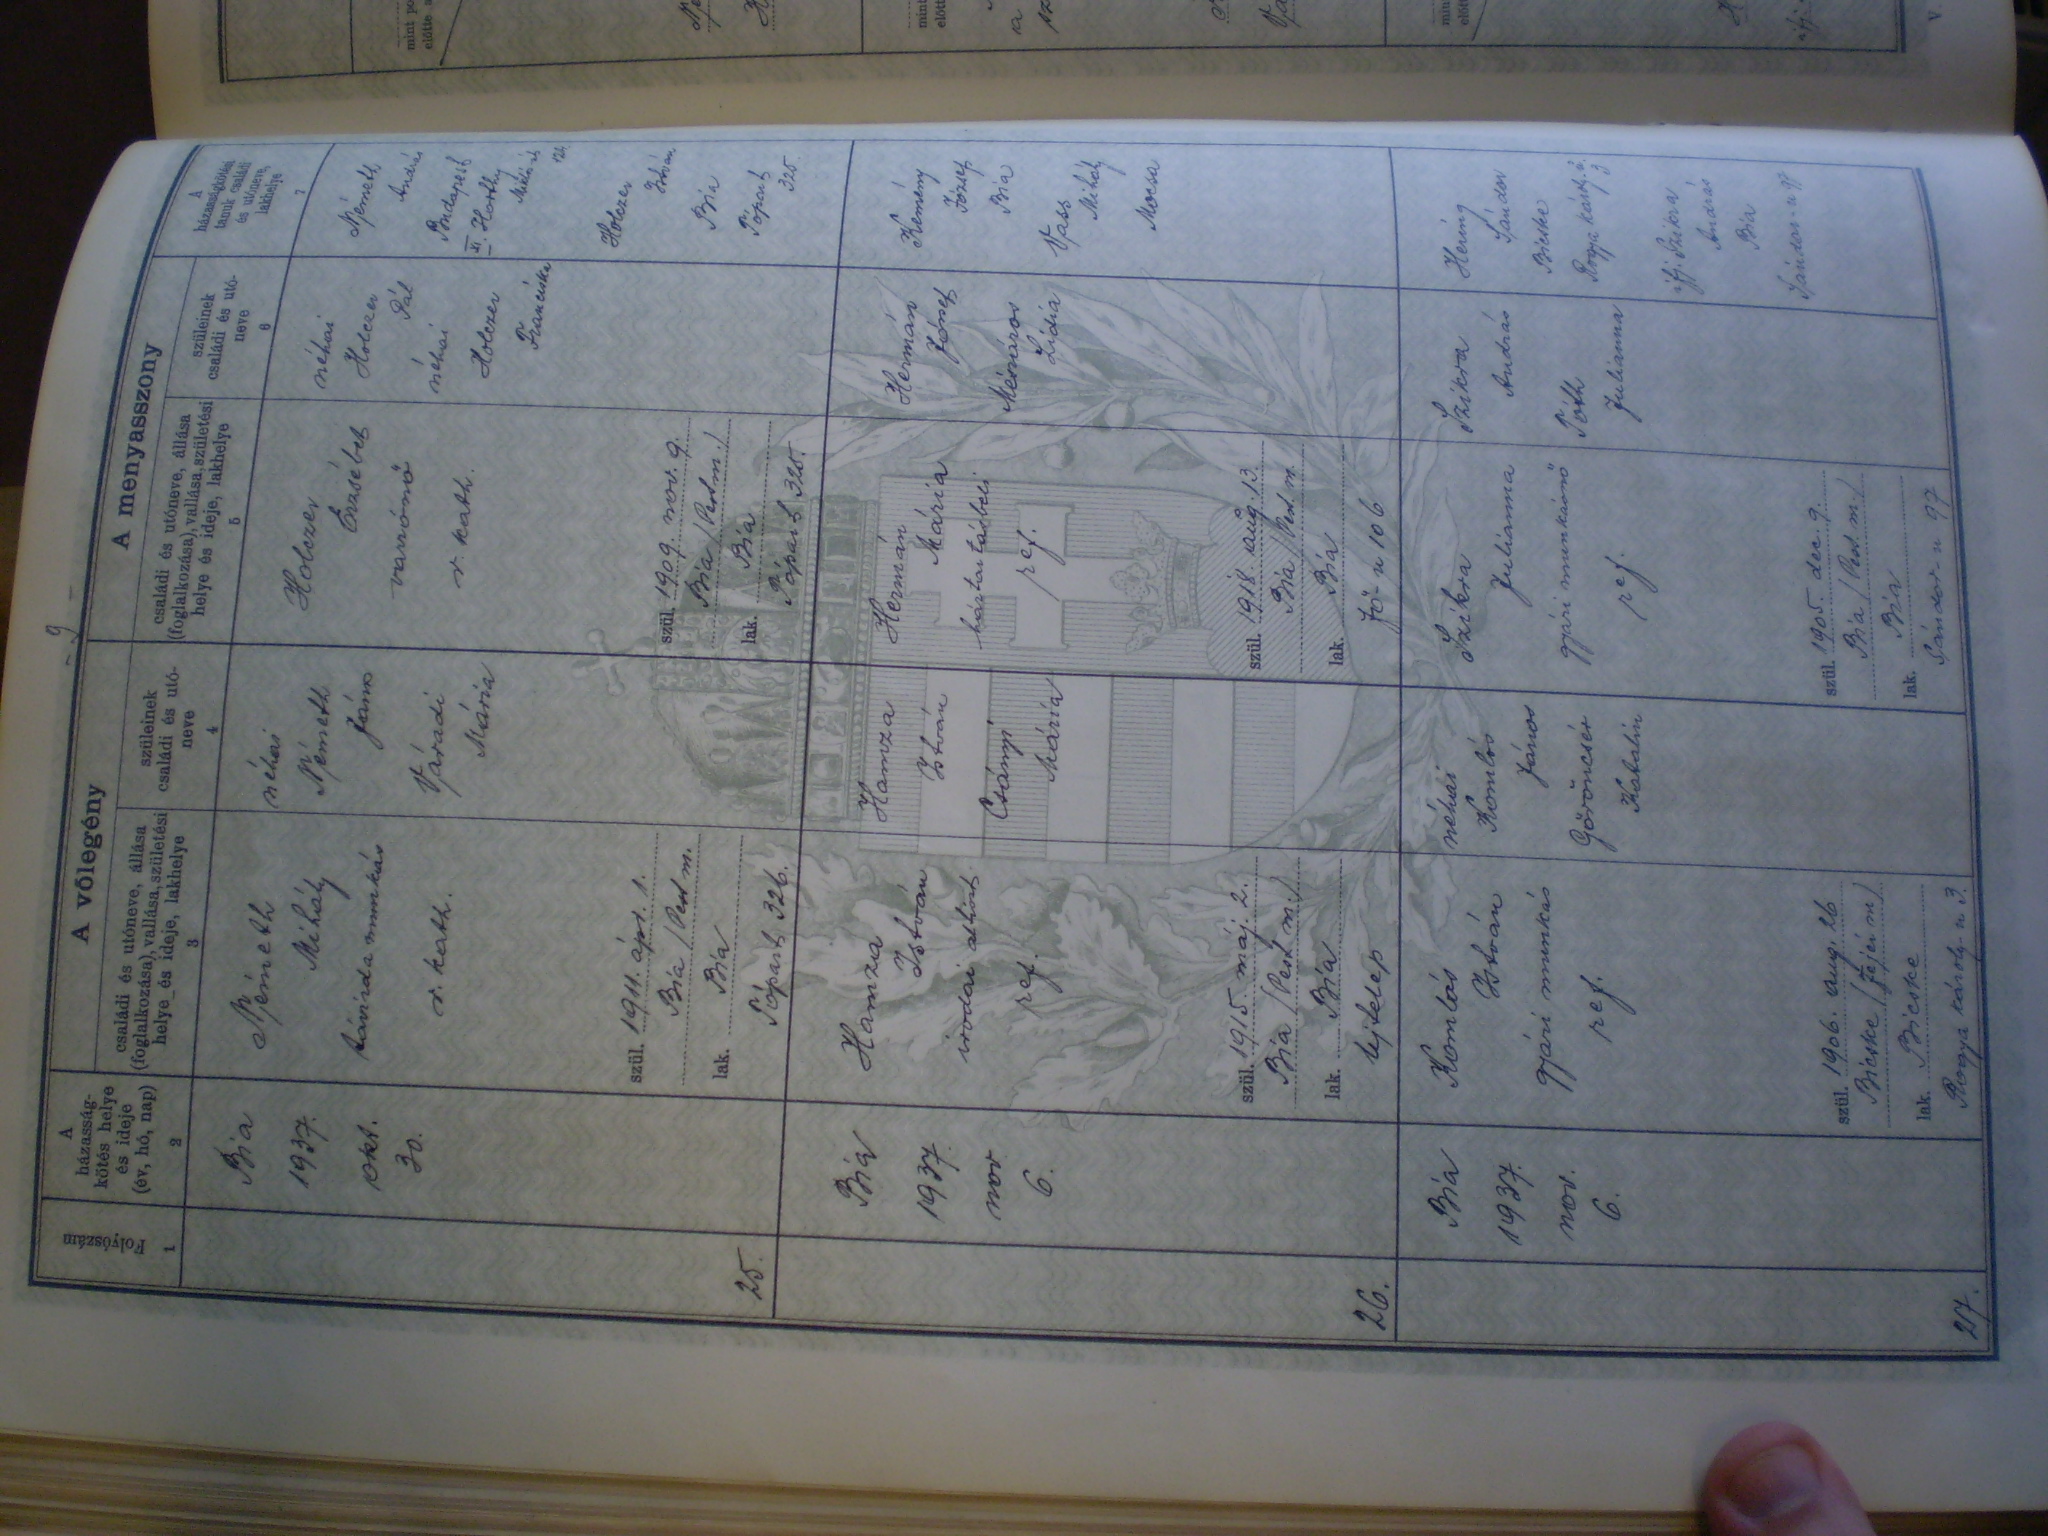 - 9 -
A vőlegény
A menyasszony
Folyószám
A
házasság-
kötés helye
és ideje
(év, hó, nap)
családi és utóneve, állása
(foglalkozása), vallása, születési
helye és ideje, lakhelye
szüleinek
családi és utó-
neve
családi és utóneve, állása
(foglalkozása), vallása, születési
helye és ideje, lakhelye
szüleinek
családi és utó-
neve
A
házasságkötési
tanuk családi
és utóneve,
lakhelye
1
2
3
4
5
6
7
25.
Bia
1937.
okt.
30.
Németh
Mihály
távirda munkás
r. kath.
szül. 1911. ápr. 1.
Bia /Pest m.
lak. Bia
Tópart 326.
néhai
Németh
János
Váradi
Mária
Holczer
Erzsébet
varrónő
r. kath.
szül. 1909. nov. 9.
Bia /Pest m./
lak. Bia
Tópart 325.
néhai
Holczer
Pál
néhai
Holczer
Franciska
Németh
András
Budapest
XI. Horthy
Miklós
Holczer
István
Bia
Tópart
325.
26.
Bia
1937.
nov
6.
Hamza
István
irodai altiszt
ref.
szül. 1915. máj. 2.
Bia /Pest m./
lak. Bia
Ujtelep
Hamza
István
Csányi
Mária
Hermán
Mária
háztartásbeli
ref.
szül. 1918. aug. 13.
Bia /Pest m.
lak. Bia
Fő-u 106
Hermán
József
Mészáros
Lidia
Kemény
József
Bia
Vass
Mihály
Mocsa
27.
Bia
1937.
nov.
6.
Komlós
István
gyári munkás
ref.
szül. 1906. aug. 26
Bicske /Fejér m/
lak. Bicske
Rogya károly-u 3.
néhai
Komlós
János
Göröncsér
Katalin
Szikra
Julianna
gyári munkásnő
ref.
szül. 1905 dec. 9.
Bia /Pest m./
lak. Bia
Sándor-u 97
Szikra
András
Tóth
Julianna
Hering
Sándor
Bicske
Rogya károly-u.
3
ifj. Szikra
András
Bia
Sándor-u 97